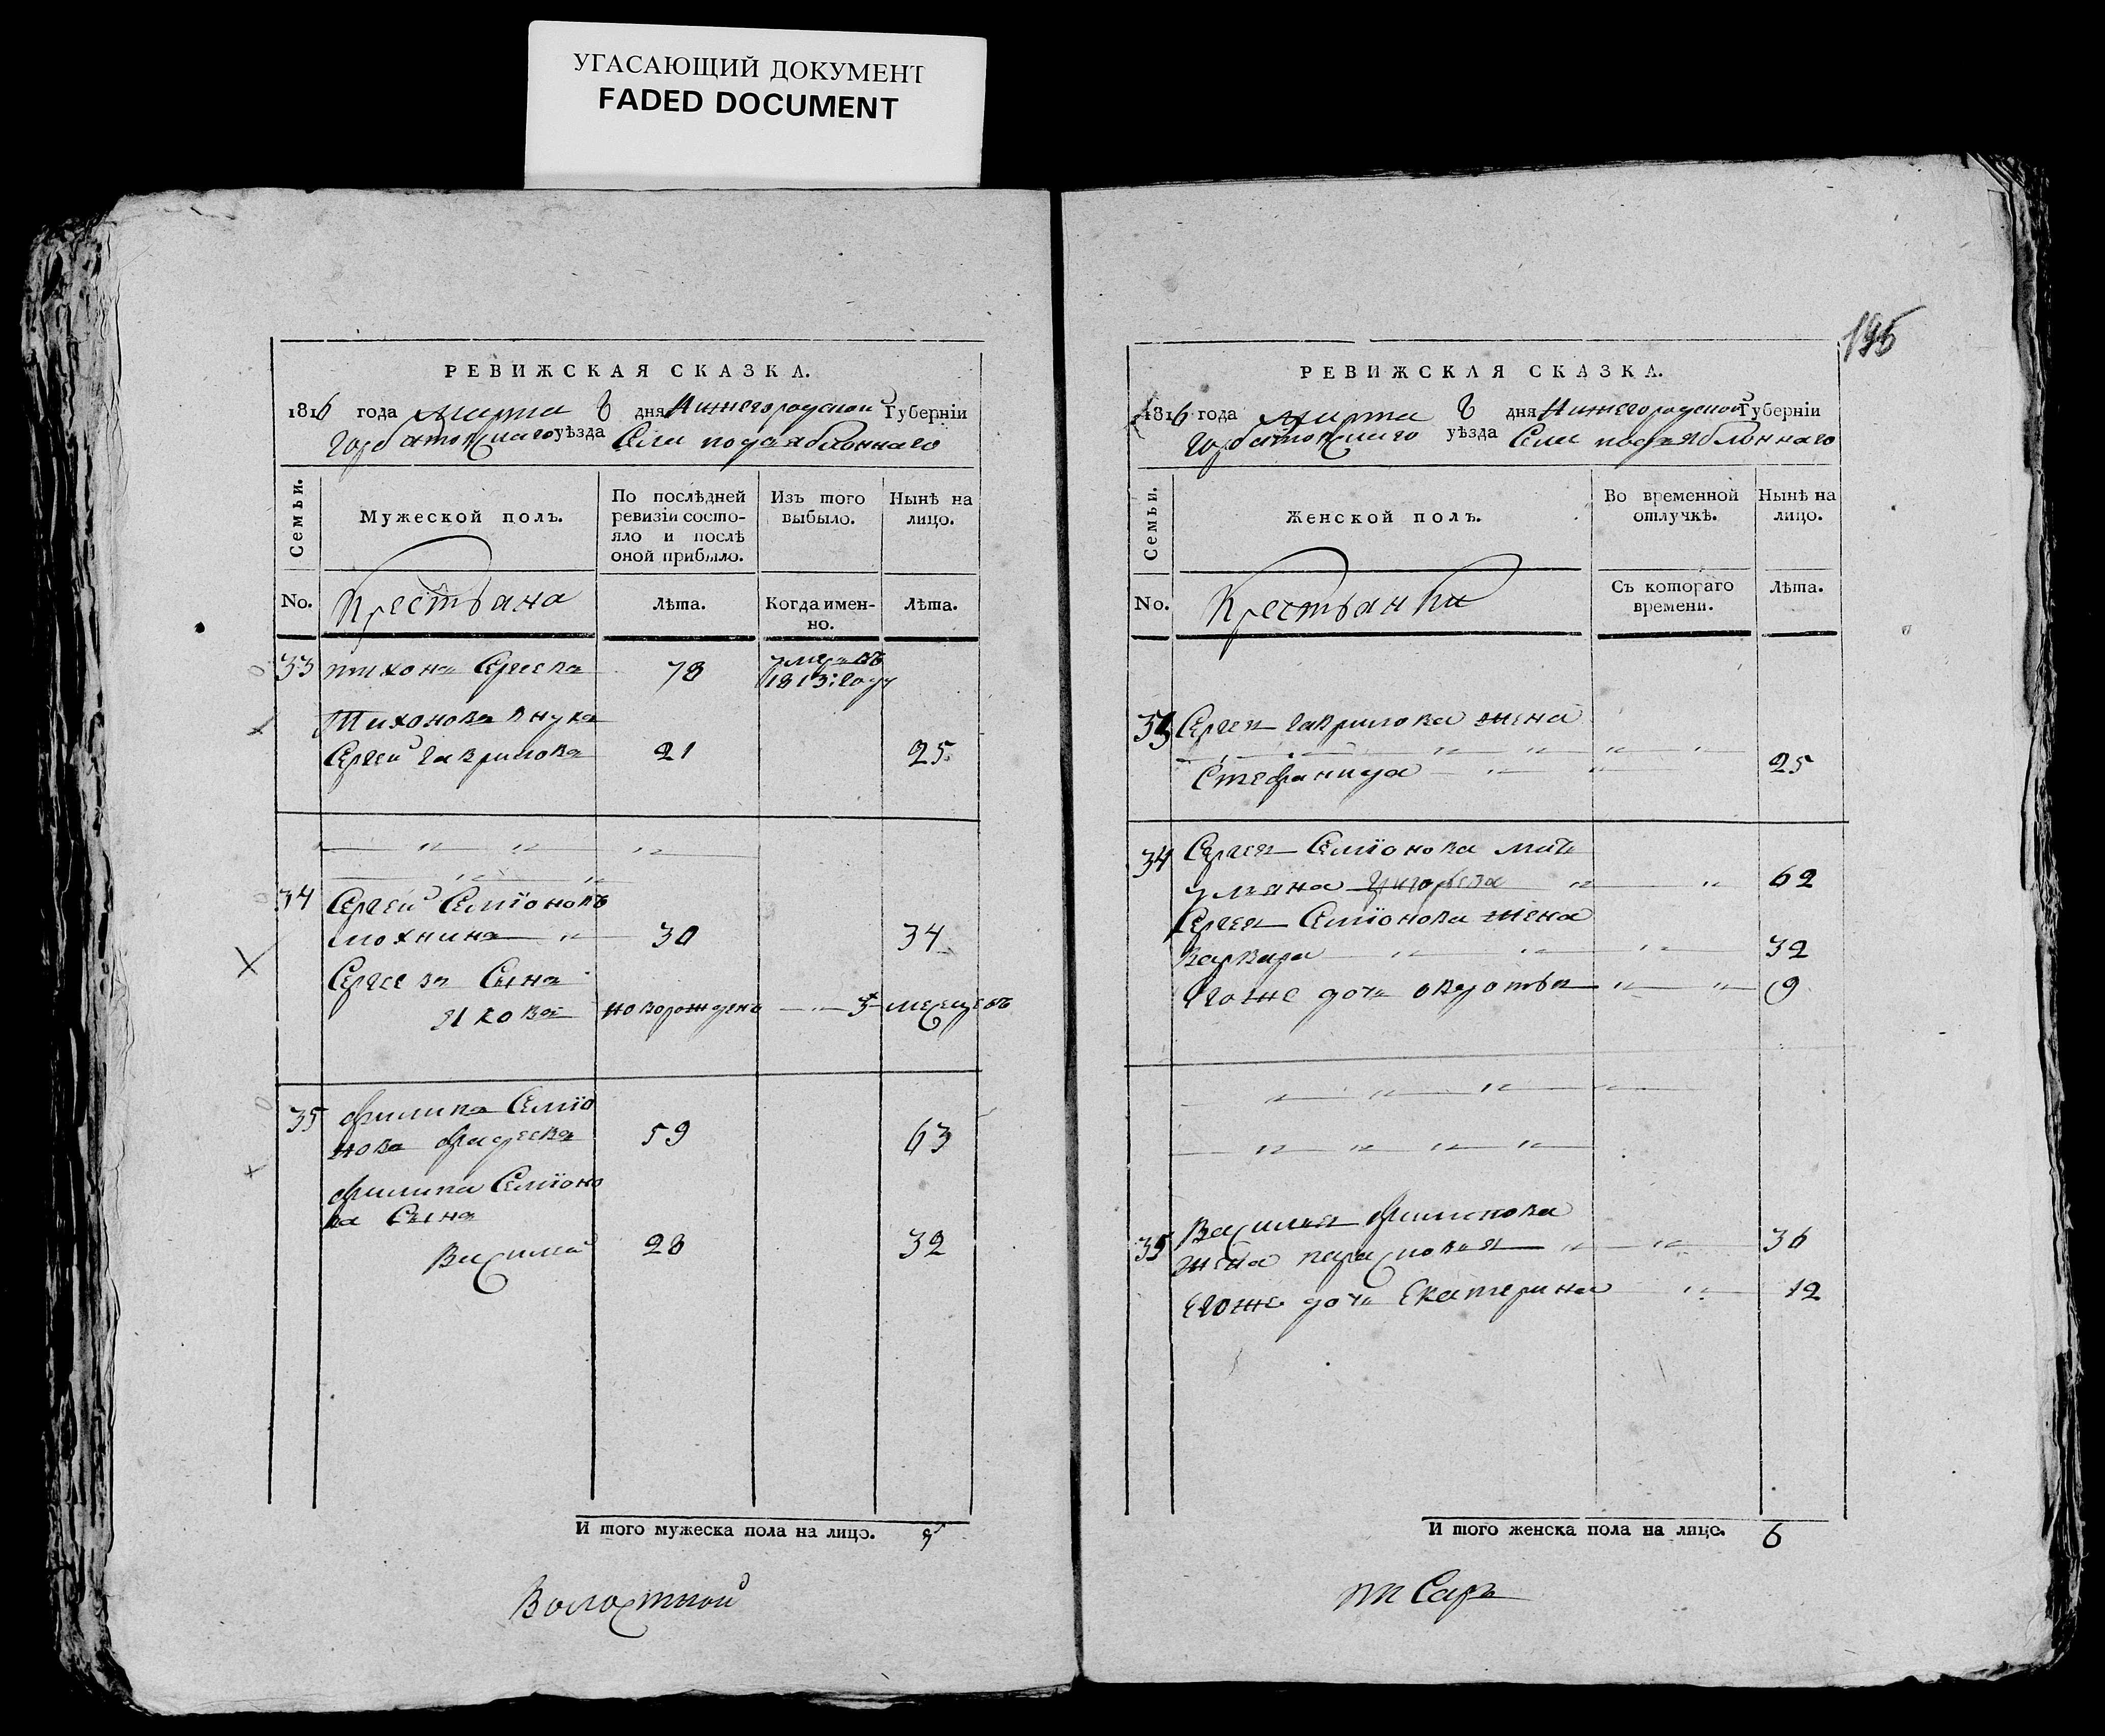 УГАСАЮЩИЙ ДОКУМЕНТ
FADED DOCUMENT
РЕВИЖСКАЯ СКАЗКА.
1816 года марта 8 дня Нижегородской Губерніи
Горбатовскаго уѣзда Села подъяблоннаго
Семьи.
Мужеской полъ.
По послѣдней ревизіи состо-
яло и послѣ
оной прибыло.
Изъ того
выбыло.
Нынѣ на
лицо.
No.
Крестьяна
Лѣта.
Когда имен-
но.
Лѣта.
33 тихонъ Сергеевъ 78 умеръ въ
1813: году
Тихонова внукъ
Сергей гавриловъ 21 25
34 Сергей Семіоновъ
мохнинъ 30 34
Сергеевъ Сынъ
Яковъ новорожденъ месецовъ
35 филипъ Семіо
новъ 59 63
филипа Семіоно
ва Сынъ
Василий 28 32
И того мужеска пола на лицо. 5
Волостной
195
РЕВИЖСКАЯ СКАЗКА.
1816 года марта 8 дня Нижегородской Губерніи
Горбатовскаго уѣзда Села подъяблоннаго
Семьи.
Женской полъ.
Во временной
отлучкѣ.
Нынѣ на
лицо.
No.
Крестьянки
Съ котораго
времени.
Лѣта.
33 Сергея гаврилова жена
Стефанида 25
34 Сергея Семіонова мать
ульяна 62
Сергея Семіонова жена
варвара 32
Егоже дочь 9
Василья филипова
35 жена парасковья 36
Егоже дочь Екатерина 12
И того женска пола на лицо. 6
писарь